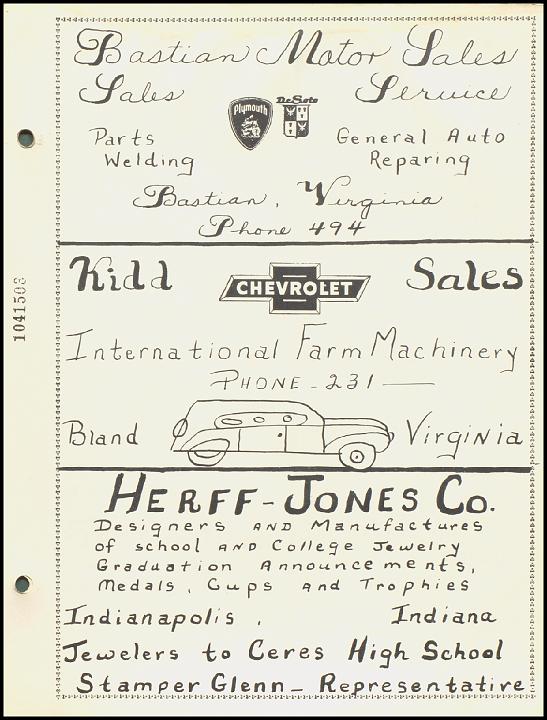 Bastian Motor Sales
Sales Service
Plymouth
De Soto
Parts General Auto
Welding Reparing
Bastian, Virginia
Phone 494
Kidd CHEVROLET Sales
International Farm Machinery
PHONE - 231
Bland Virginia
HERFF-JONES Co.
Designers AND Manufactures
of school AND College Jewelry
Graduation Announcements,
Medals, Cups and Trophies
Indianapolis, Indiana
Jewelers to Ceres High School
Stamper Glenn - Representative